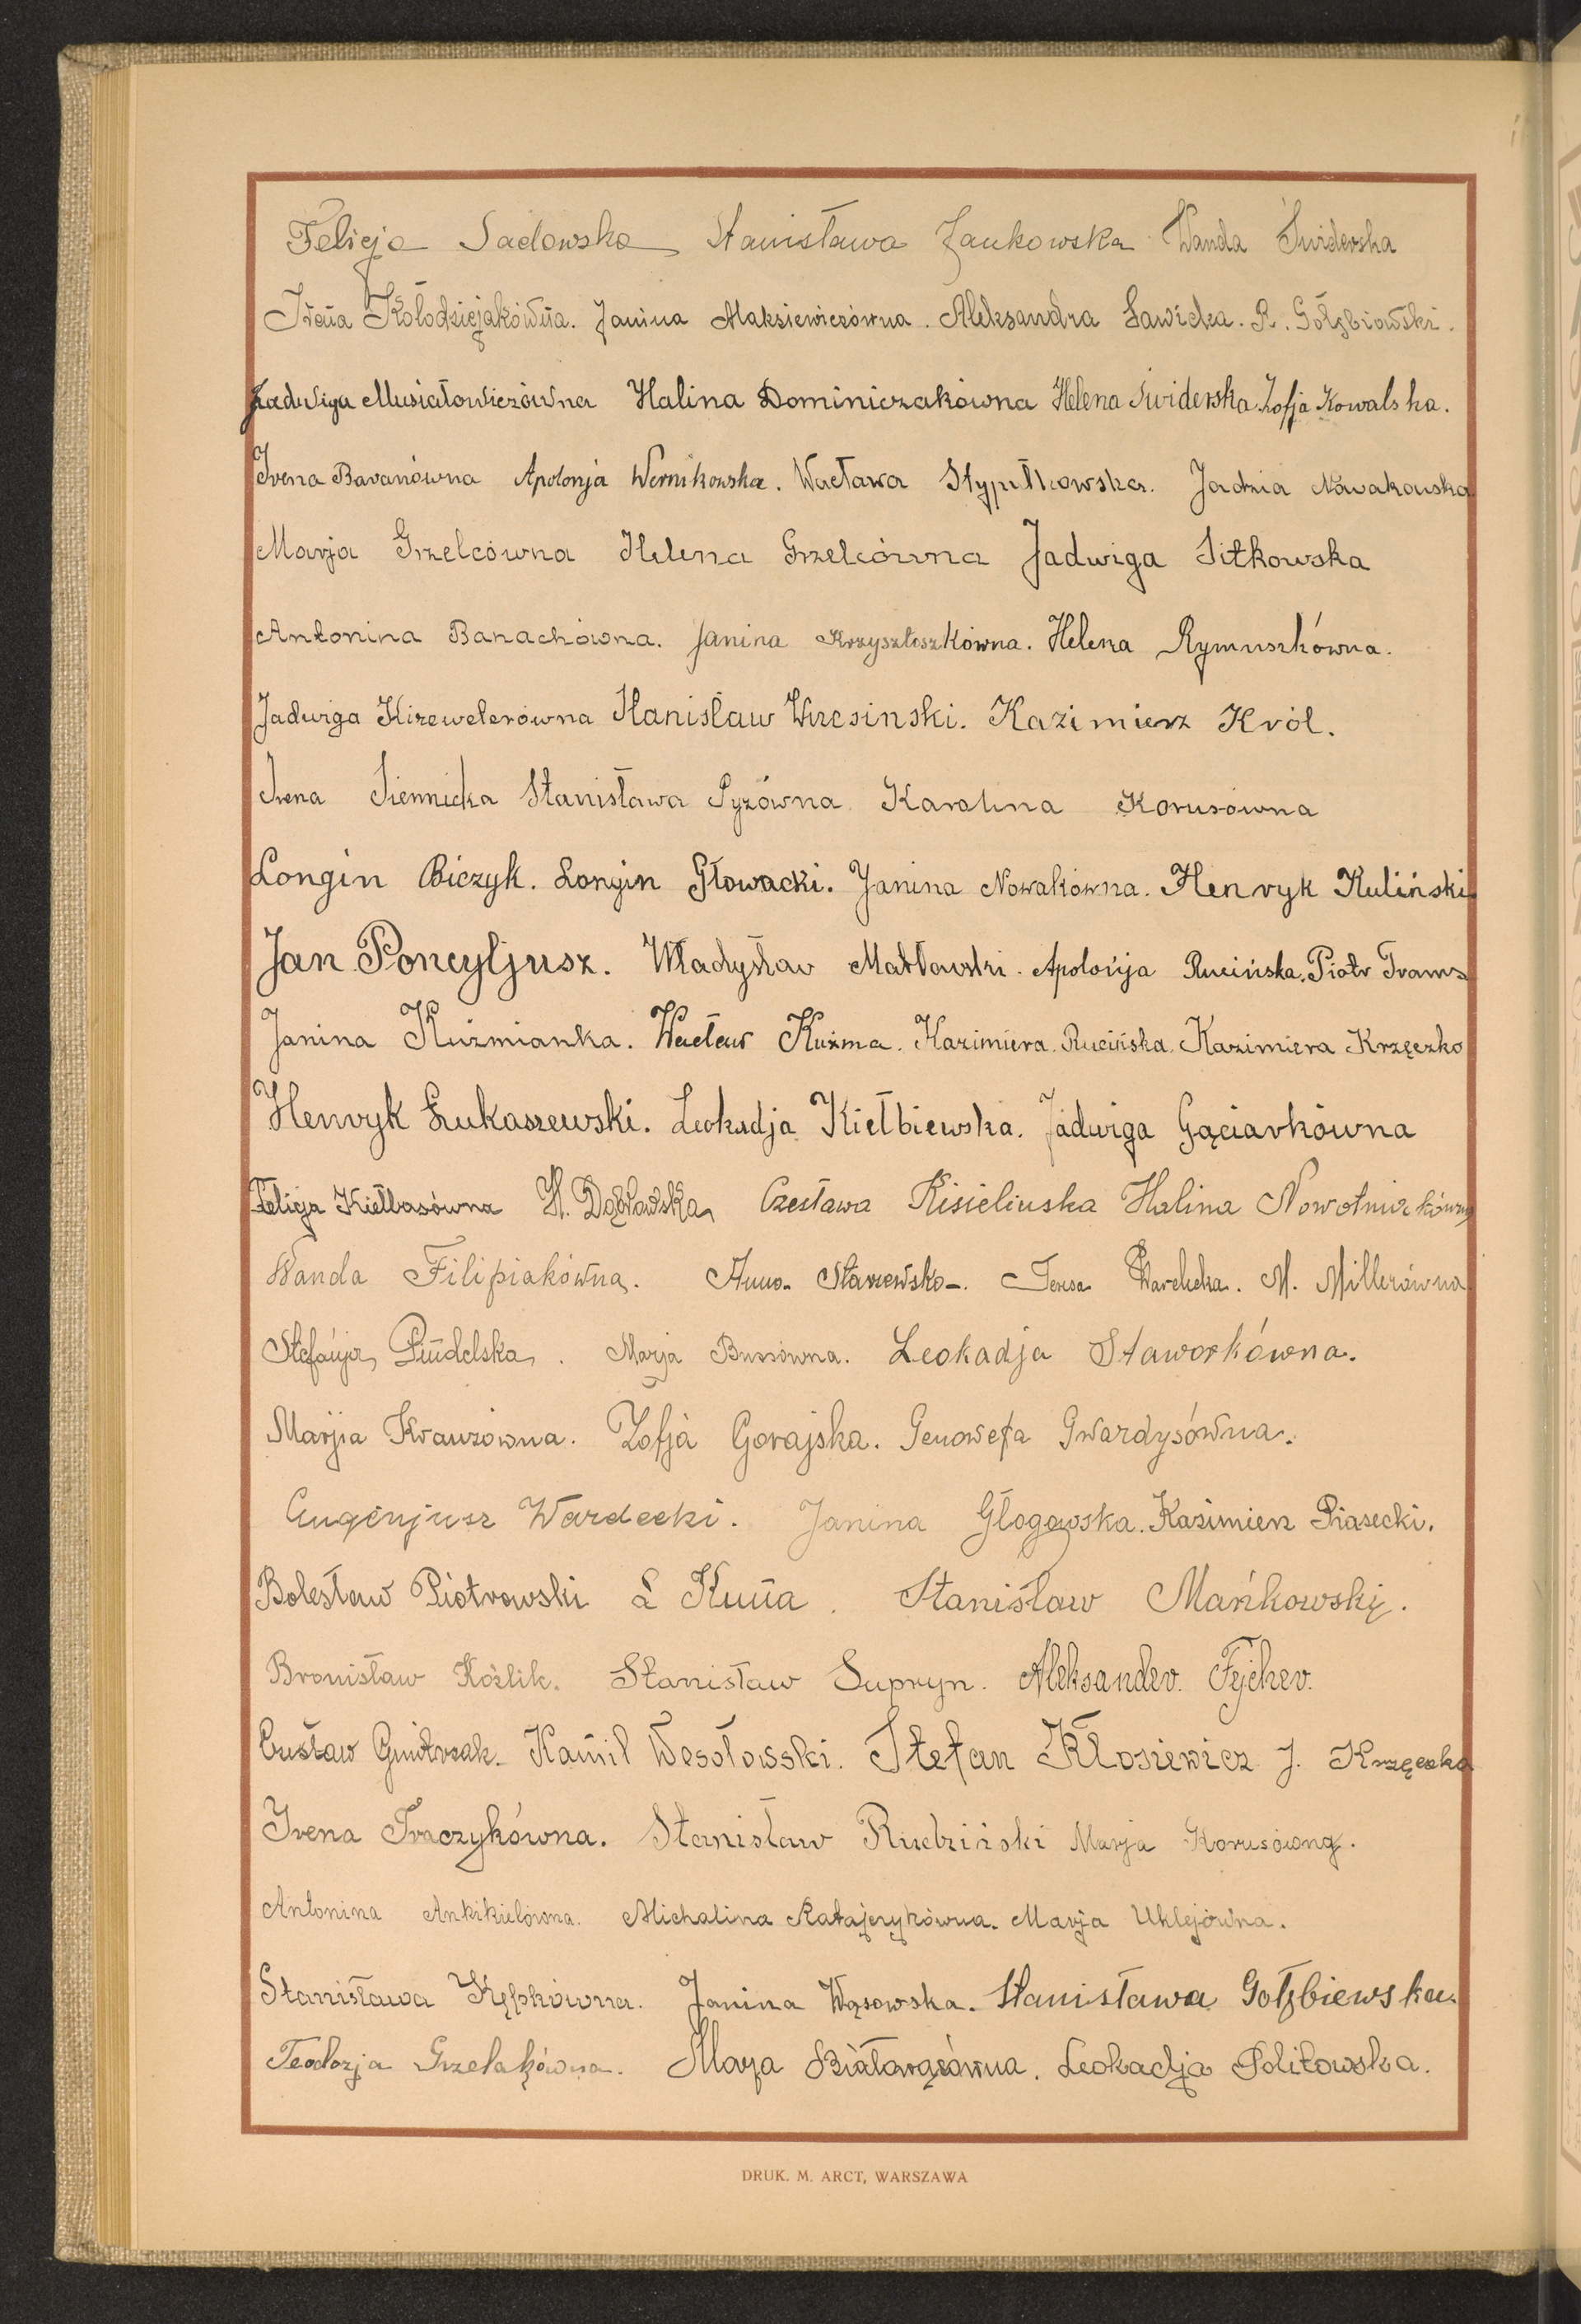 Felicja Sadowska Stanisława Jankowska Wanda Świderska
Irena Kołodziejakówna. Janina Maksiewiczówna. Aleksandra Sawicka. R. Gołębiowski.
Jadwiga Musiałowiczówna Halina Dominiczakówna Helena Świderska Zofja Kowalska.
Irena Baranówna Apolonja Wernikowska. Wacława Stypułkowska. Jadzia Nowakowska
Marja Grzelcówna Helena Grzelcówna Jadwiga Sitkowska
Antonina Banachówna. Janina Krzysztoszkówna. Helena Rymuszkówna.
Jadwiga Kirewelerówna Stanisław Wrzesinski. Kazimierz Król.
Irena Siennicka Stanisława Pyzówna Karolina Korusówna
Longin Biczyk. Longin Głowacki. Janina Nowakówna. Henryk Kuliński.
Jan Poncyljusz. Władysław Matławski. Apolonja Rucińska. Piotr Trams
Janina Kuźmianka. Wacław Kuźma. Kazimiera Rucińska. Kazimiera Krzęczko
Henryk Łukaszewski. Leokadja Kiełbiewska. Jadwiga Gąciarkówna
Felicja Kiełbasówna H. Dąbrowska Czesława Kisielińska Halina Nowotniakówna
Wanda Filipiakówna. Anna Starzewska. Teresa Wardecka. M. Millerówna
Stefanja Pudelska. Marja Bussówna. Leokadja Staworkówna.
Marjia Krauzówna. Zofja Gorajska. Genowefa Gwardysówna.
Eugenjusz Wardecki. Janina Głogowska. Kazimierz Piasecki.
Bolesław Piotrowski L Kuna. Stanisław Mańkowski.
Bronisław Koźlik. Stanisław Supryn. Aleksander. Fejcher.
Czesław Gmitrzak. Kamil Wesołowski. Stefan Kłosiewicz J. Krzęczko
Irena Traczykówna. Stanisław Rudziński Marja Korusówna.
Antonina Ankikielówna. Michalina Ratajczykówna. Marja Uklejówna.
Stanisława Kępkówna. Janina Wąsowska. Stanisława Gołębiewska.
Teodozja Grzelakówna. Marja Białowąsówna. Leokadja Politowska.
DRUK. M. ARCT, WARSZAWA